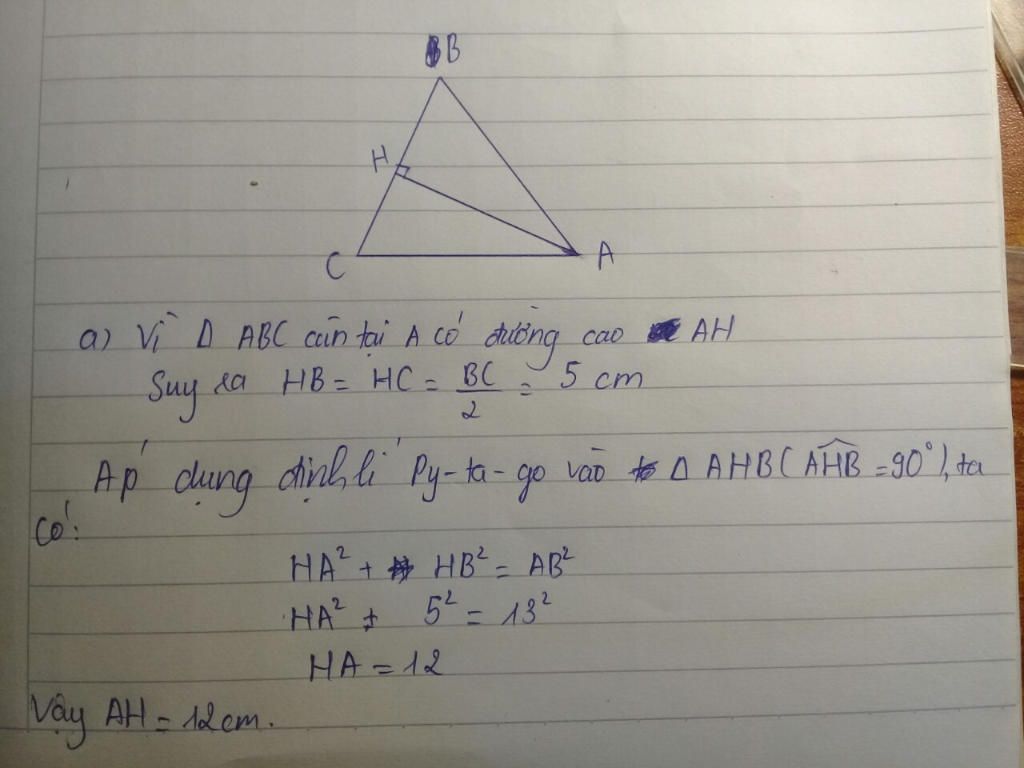 B
H
C
A
a) Vì Δ ABC cân tại A có đường cao AH
Suy ra HB = HC = BC/2 = 5 cm
Áp dụng định lí Py-ta-go vào Δ AHB (AHB = 90°), ta
có:
HA² + HB² = AB²
HA² + 5² = 13²
HA = 12
Vậy AH = 12cm.